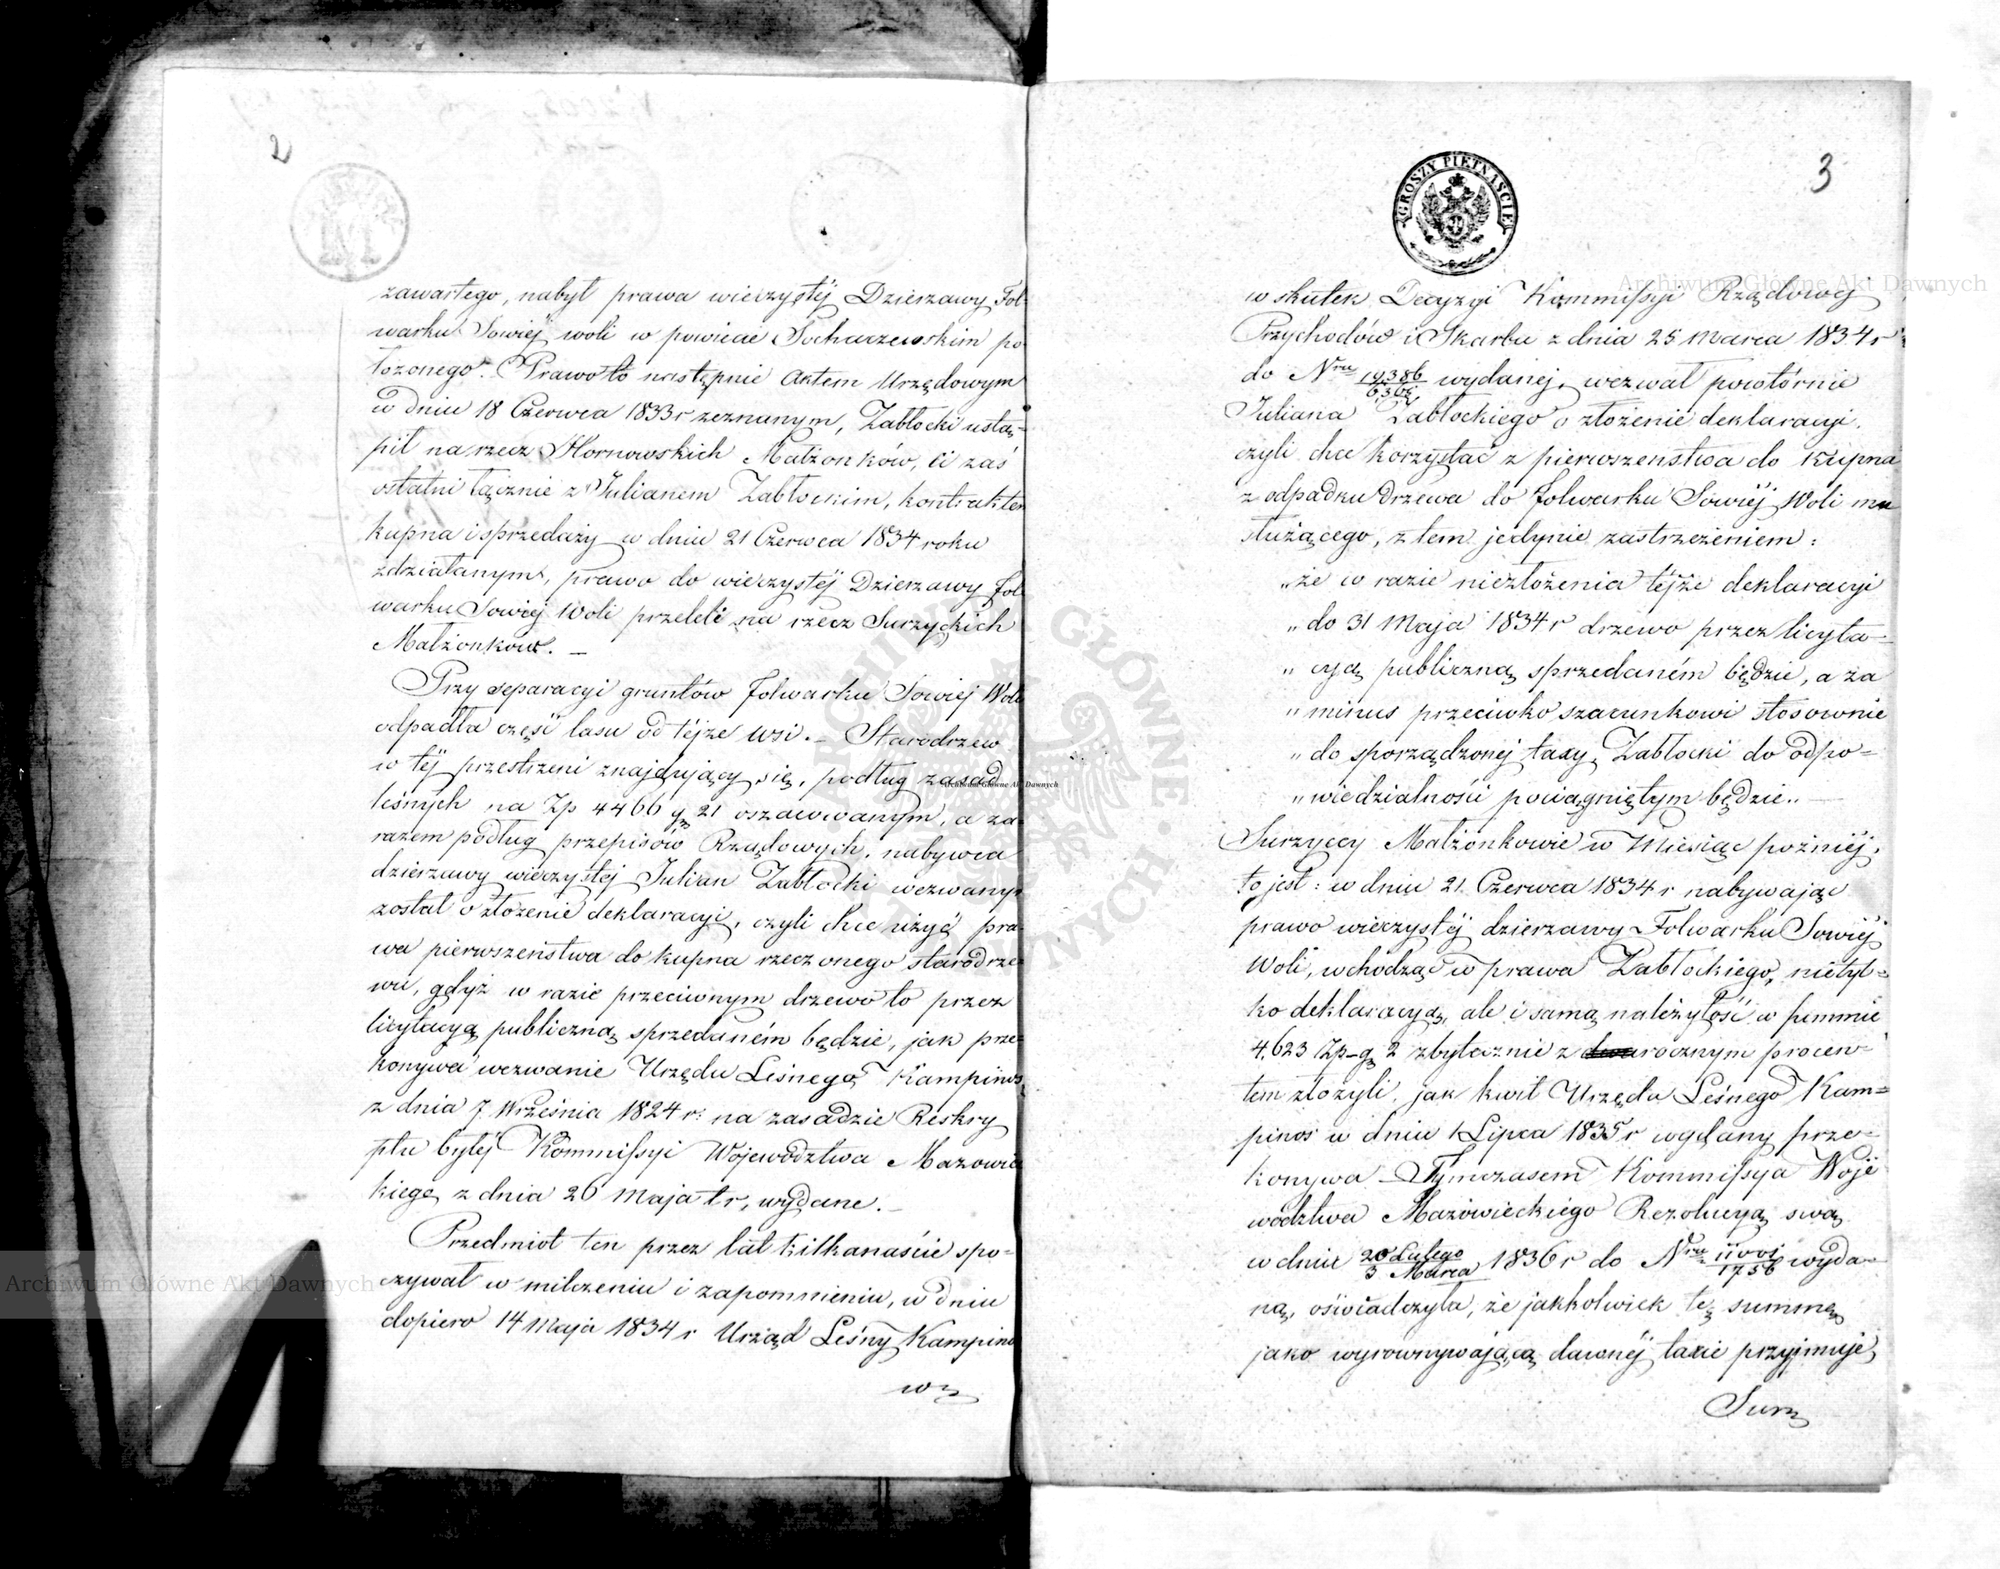 2
zawartego, nabył prawa wieczystéj Dzierzawy Fol-
warku Sowiéj woli w powiecie Sochaczewskim po
łożonego. Prawo to następnie Aktem Urzędowym
w dniu 18 Czerwca 1833 r zeznanym, Zabłocki ustą-
pił na rzecz Hornowskich Małżonków, ci zaś
ostatni łącznie z Julianem Zabłockim, kontraktem
kupna i sprzedaży w dniu 21 Czerwca 1834 roku
zdziałanym, prawo do wieczystéj Dzierzawy fol
warku Sowiej Woli przeleli na rzecz Surzyckich
Małżonków. —
Przy separacyi gruntów folwarku Sowiéj Woli
odpadła część lasu od téjże wsi. — Starodrzew
w téj przestrzeni znajdujący się, podług zasad
leśnych na Zp 4466 g 21 oszacowanym, a za-
razem podług przepisów Rządowych, nabywca
dzierzawy wieczystéj Julian Zabłocki wezwanym
został o złożenie deklaracyi, czyli chce użyć pra-
wa pierwszeństwa do kupna rzeczonego starodrze-
wu, gdyż w razie przeciwnym drzewo to przez
licytacyą publiczną sprzedaném będzie, jak prze-
konywa wezwanie Urzędu Leśnego Kampinos
z dnia 7 Września 1824 r. na zasadzie Reskry
ptu byłéj Kommissyi Województwa Mazowiec
kiego z dnia 26 Maja t r, wydane. —
Przedmiot ten przez lat kilkanaście spo-
czywał w milczeniu i zapomnieniu, w dniu
dopiero 14 Maja 1834 r Urząd Leśny Kampinos
w
3
GROSZY PIĘTNAŚCIE
w skutek Decyzyi Kommissyi Rządowej
Przychodów i Skarbu z dnia 25 Marca 1834 r
do Nru 19386 wydanej, wezwał powtórnie
Juliana Zabłockiego o złożenie deklaracyi,
czyli chce korzystać z pierwszeństwa do kupna
z odpadku drzewa do folwarku Sowiéj Woli mu
służącego, z tem jedynie zastrzeżeniem:
„że w razie niezłożenia téjże deklaracyi
„do 31 Maja 1834 r drzewo przez licyta-
„cyą publiczną sprzedaném będzie, a za
„minus przeciwko szacunkowi stosownie
„do sporządzonej taxy, Zabłocki do odpo-
„wiedzialności pociągniętym będzie„ —
Surzyccy Małżonkowie w Miesiąc poźniéj,
to jest: w dniu 21 Czerwca 1834 r nabywając
prawo wieczystéj dzierzawy Folwarku Sowiéj
Woli, wchodząc w prawa Zabłockiego, nietyl-
ko deklaracyą, ale i samą należytość w summie
4,623 Zp g 2 zbytecznie z rocznym procen-
tem złożyli, jak kwit Urzędu Leśnego Kam-
pinos w dniu 1 Lipca 1835 r wydany prze-
konywa — Tymczasem Kommissya Woje
wództwa Mazowieckiego Rezolucyą swą
w dniu 20 Lutego / 3 Marca 1836 r do Nru 11001 / 1756 wyda-
ną, oświadczyła, że jakkolwiek tę summę
jako wyrownywającą dawnéj taxie przyjmuje,
Surz
Archiwum Główne Akt Dawnych
Archiwum Główne Akt Dawnych
Archiwum Główne Akt Dawnych